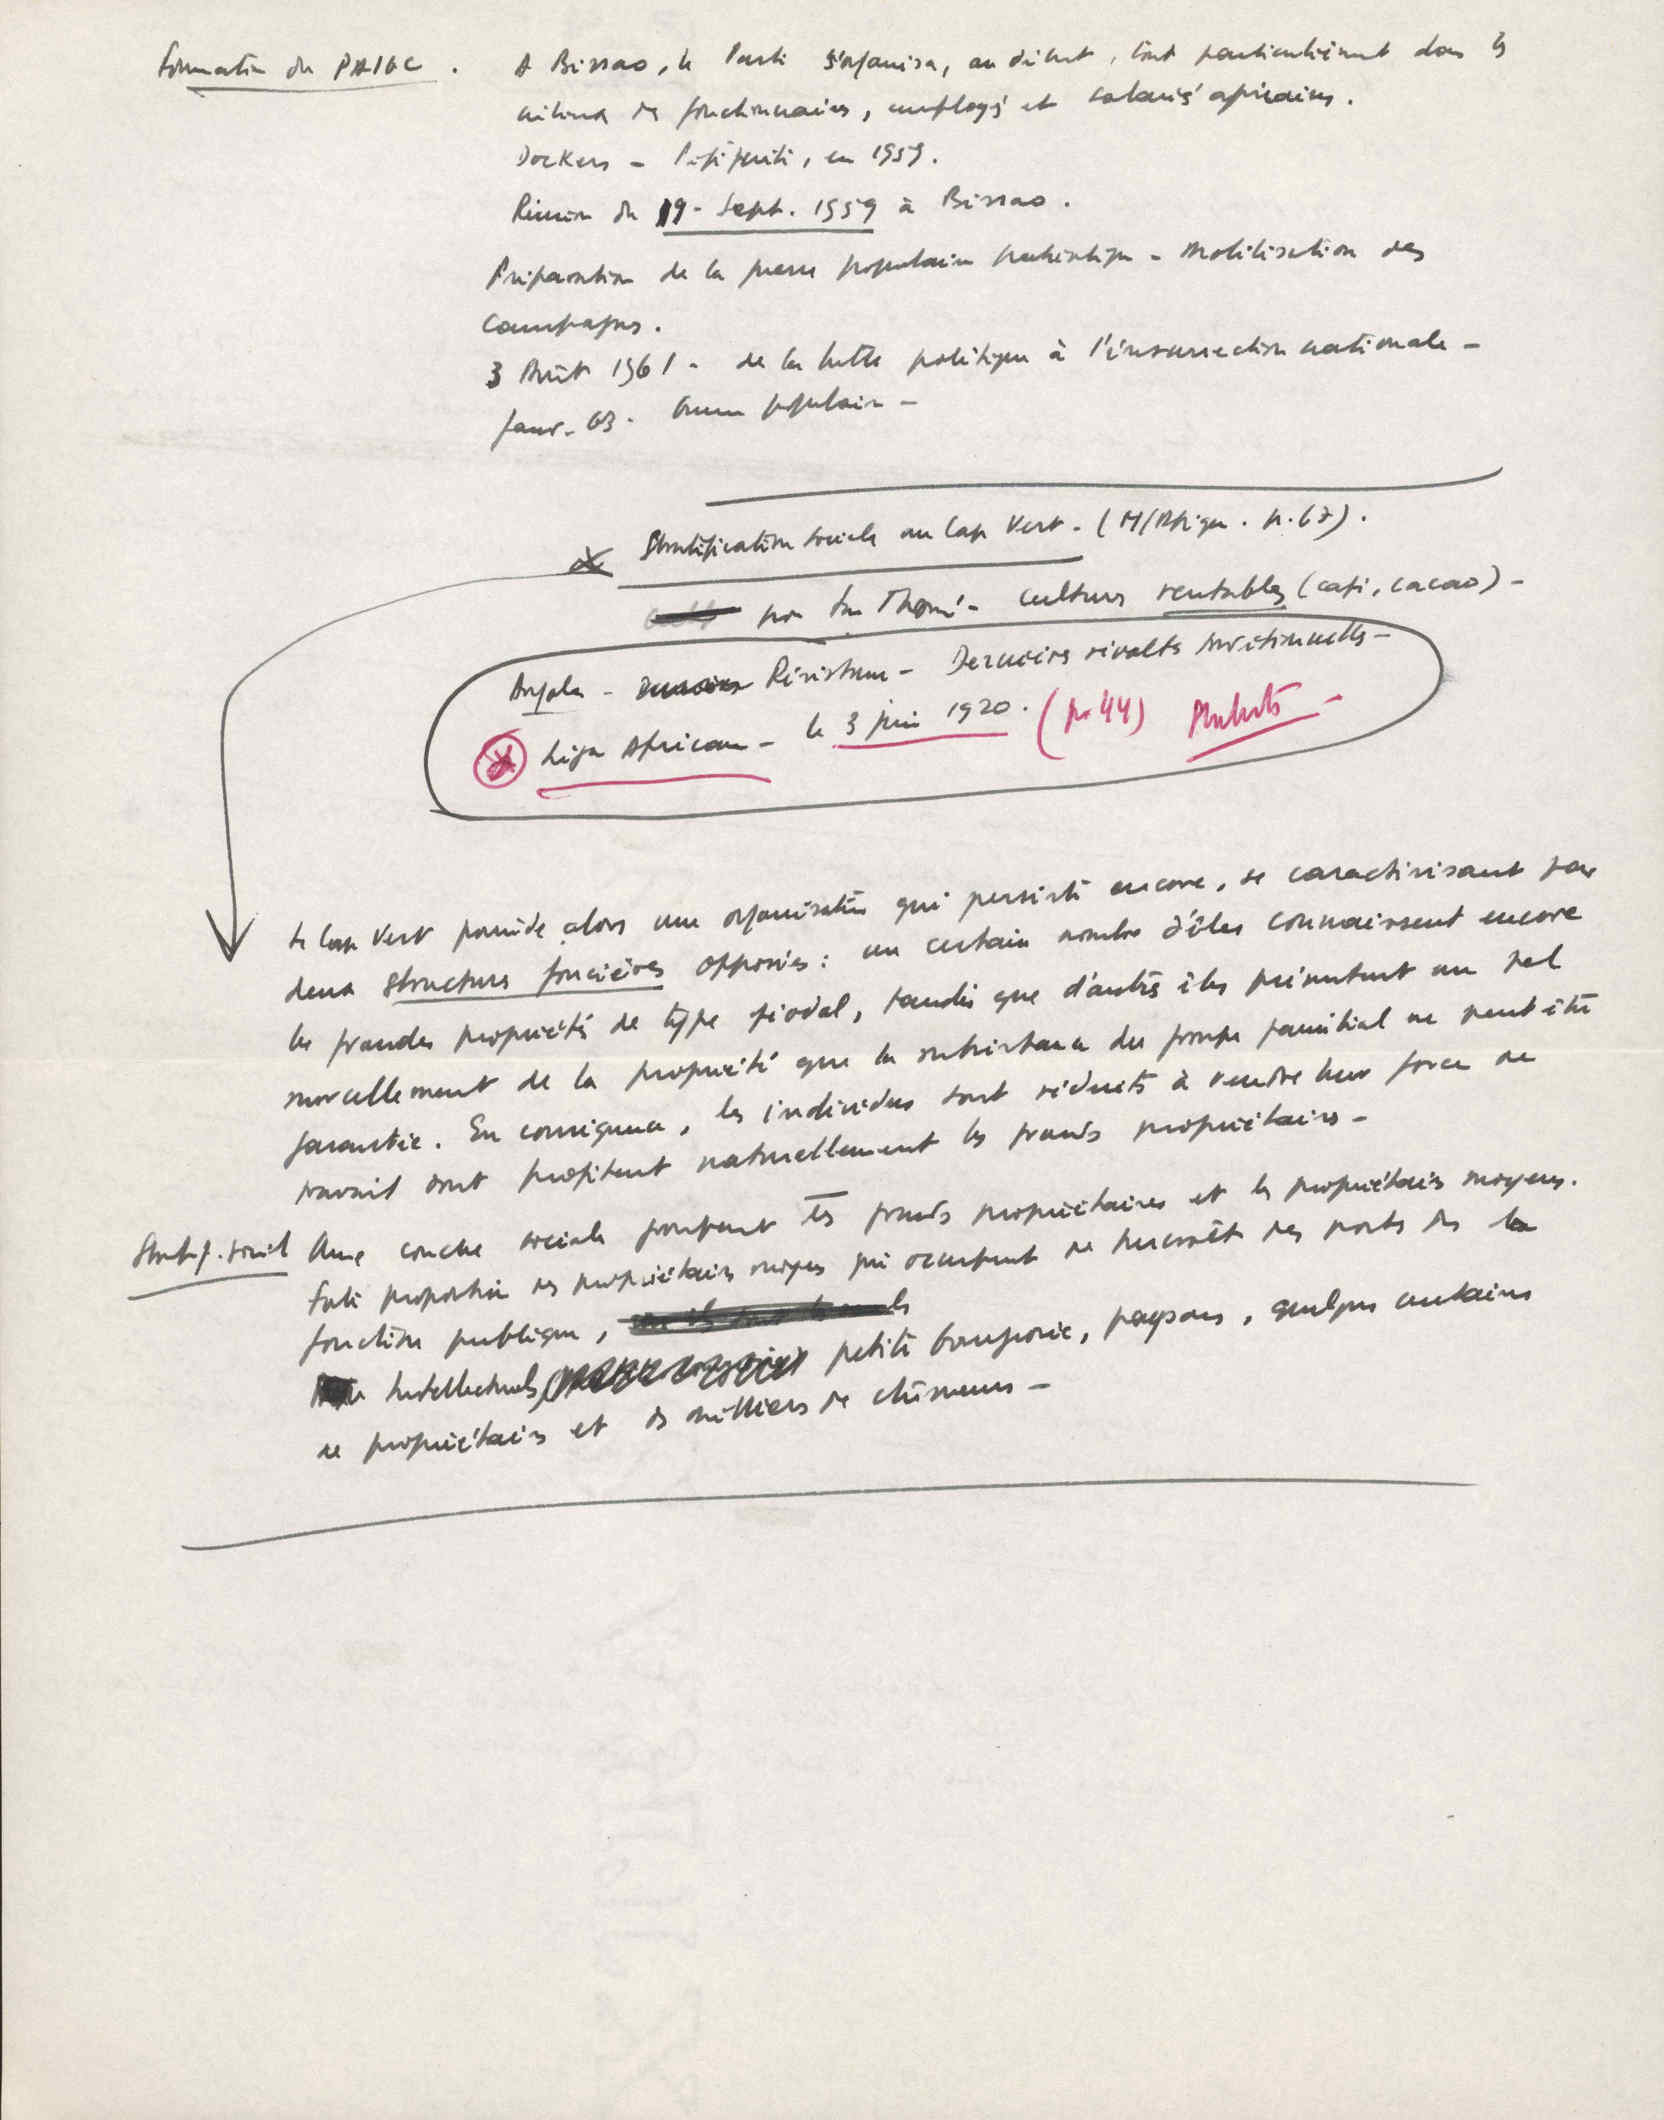 Formation du PAIGC. A Bissao, le Parti s'organisa, au début, tout particulièrement dans les
milieux des fonctionnaires, employés et salariés africains.
Dockers - Pidjiguiti, en 1959.
Réunion du 19 - Sept. 1959 à Bissao.
Préparation de la guerre populaire - Mobilisation des
Campagnes.
3 Août 1961 - de la lutte politique à l'insurrection nationale -
Janv. 63. Guerre populaire -
Stratification sociale au Cap Vert - (M/Afrique. p. 67).
São Thomé - cultures rentables (café, cacao) -
Angola - Résistance - Dernières révoltes traditionnelles -
Liga Africana - le 3 juin 1920. (p. 44)
Le Cap Vert possède alors une organisation qui persiste encore, se caractérisant par
deux structures foncières opposées : un certain nombre d'îles connaissent encore
les grandes propriétés de type féodal, tandis que d'autres îles présentent un tel
morcellement de la propriété que la subsistance du groupe familial ne peut être
garantie. En conséquence, les individus sont réduits à vendre leur force de
travail dont profitent naturellement les grands propriétaires -
Stratif. social Une couche sociale groupant les grands propriétaires et les propriétaires moyens.
Forte proportion des propriétaires moyens qui occupent de surcroît des postes de la
fonction publique,
Intellectuels, petite bourgeoisie, paysans, quelques centaines
de propriétaires et des milliers de chômeurs -